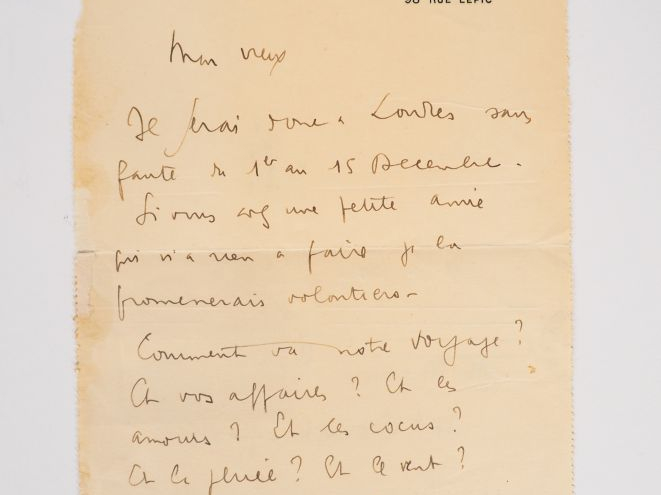 98 RUE LEPIC
Mon vieux
Je serai donc à Londres sans
faute du 1er au 15 Décembre.
Si vous avez une petite amie
qui n'a rien à faire je la
promenerais volontiers -
Comment va notre voyage ?
Et vos affaires ? Et les
amours ? Et les cocus ?
Et la fumée ? Et le vent ?